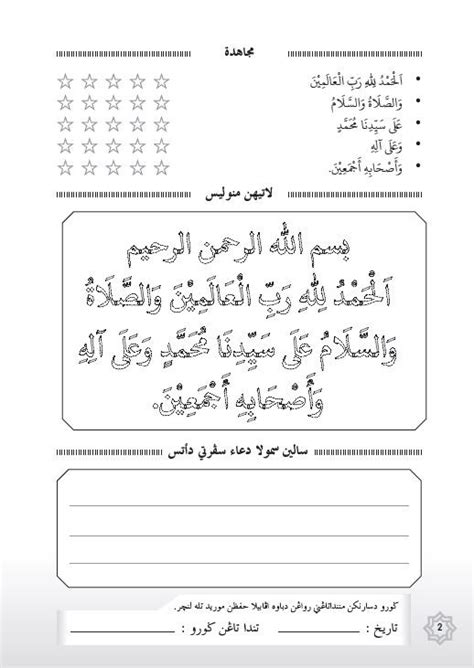 مجاهدة
• اَلْحَمْدُ لِلّٰهِ رَبِّ الْعَالَمِيْنَ
• وَالصَّلَاةُ وَالسَّلَامُ
• عَلَى سَيِّدِنَا مُحَمَّدٍ
• وَعَلَى آلِهِ
• وَأَصْحَابِهِ أَجْمَعِيْنَ.
لاتيهن منوليس
بسم الله الرحمن الرحيم
اَلْحَمْدُ لِلّٰهِ رَبِّ الْعَالَمِيْنَ وَالصَّلَاةُ
وَالسَّلَامُ عَلَى سَيِّدِنَا مُحَمَّدٍ وَعَلَى آلِهِ
وَأَصْحَابِهِ أَجْمَعِيْنَ.
سالين سمولا دعاء سڤرتي دأتس
ڬورو دسارنکن منندا تاڠني رواڠن دباوه اڤابيلا حفظن موريد تله لنچر.
تاريخ : تندا تاڠن ڬورو :
2